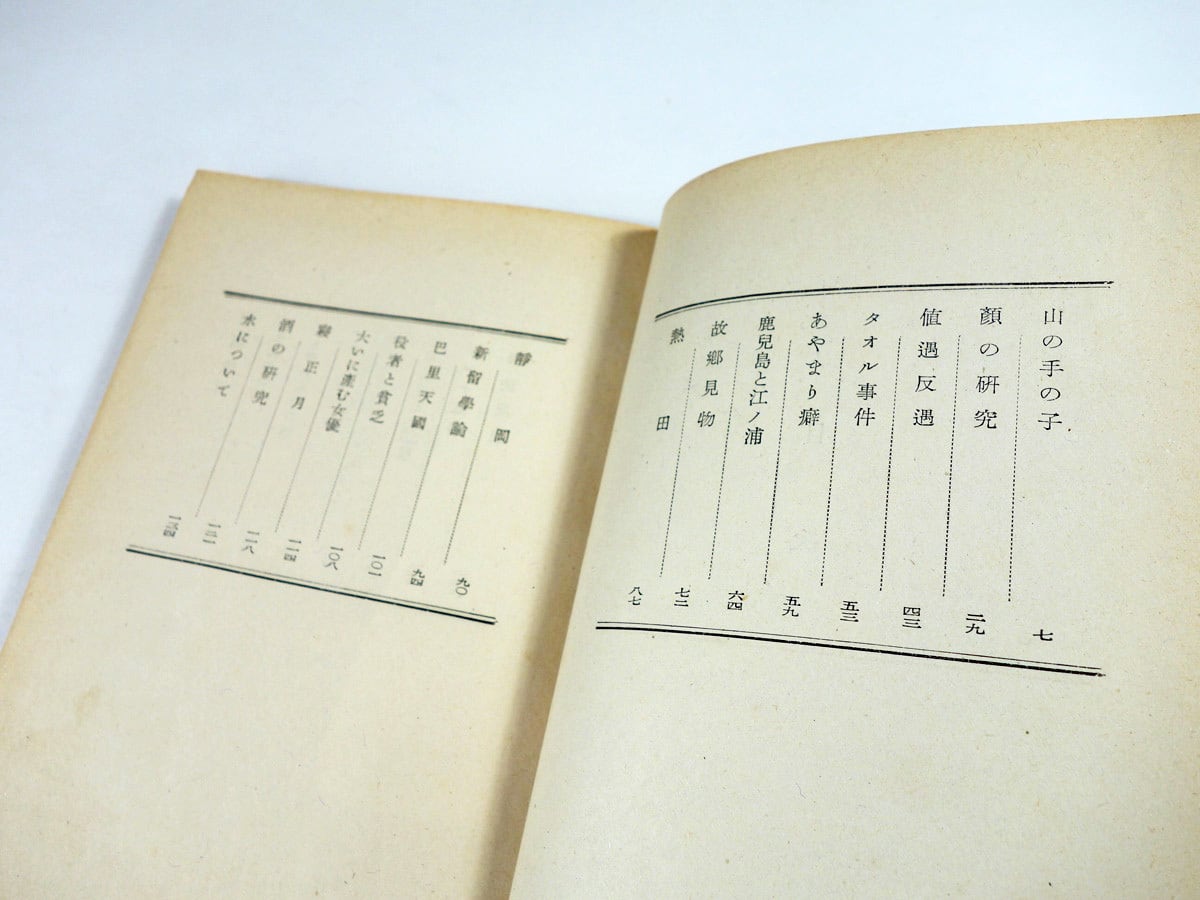 山の手の子 七
顏の研究 二九
値遇反遇 四三
タオル事件 五三
あやまり癖 五九
鹿兒島と江ノ浦 六四
故鄕見物 七二
熱田 八七
靜岡 九〇
新留學論 九四
巴里天國 一〇一
役者と貧乏 一〇八
大いに產む女優 一一四
寢正月 一一八
酒の研究 一二一
水について 一三四